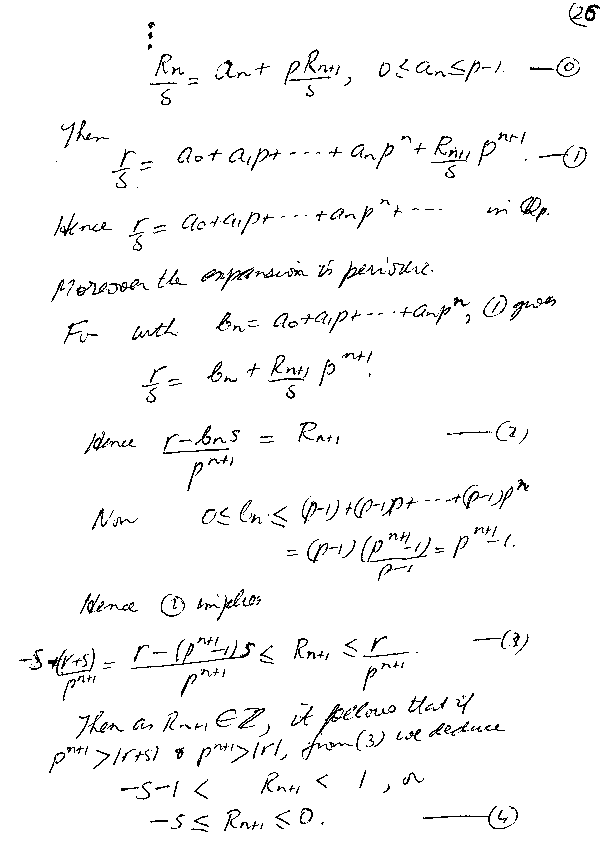 (26
⋮
R_n/s = a_n + pR_{n+1}/s, 0 ≤ a_n ≤ p-1. —(0)
Then
r/s = a_0 + a_1p + --- + a_n p^n + R_{n+1}/s p^{n+1}. —(1)
Hence r/s = a_0 + a_1p + --- + a_n p^n + --- in Q_p.
Moreover the expansion is periodic.
For with b_n = a_0 + a_1p + --- + a_n p^n, (1) gives
r/s = b_n + R_{n+1}/s p^{n+1}.
Hence (r - b_n s)/p^{n+1} = R_{n+1} —(2)
Now 0 ≤ b_n ≤ (p-1) + (p-1)p + --- + (p-1)p^n
= (p-1)(p^{n+1}-1)/(p-1) = p^{n+1}-1.
Hence (2) implies
-s + (r+s)/p^{n+1} = (r - (p^{n+1}-1)s)/p^{n+1} ≤ R_{n+1} ≤ r/p^{n+1}. —(3)
Then as R_{n+1} ∈ Z, it follows that if
p^{n+1} > |r+s| & p^{n+1} > |r|, from (3) we deduce
-s-1 < R_{n+1} < 1, or
-s ≤ R_{n+1} ≤ 0. —(4)